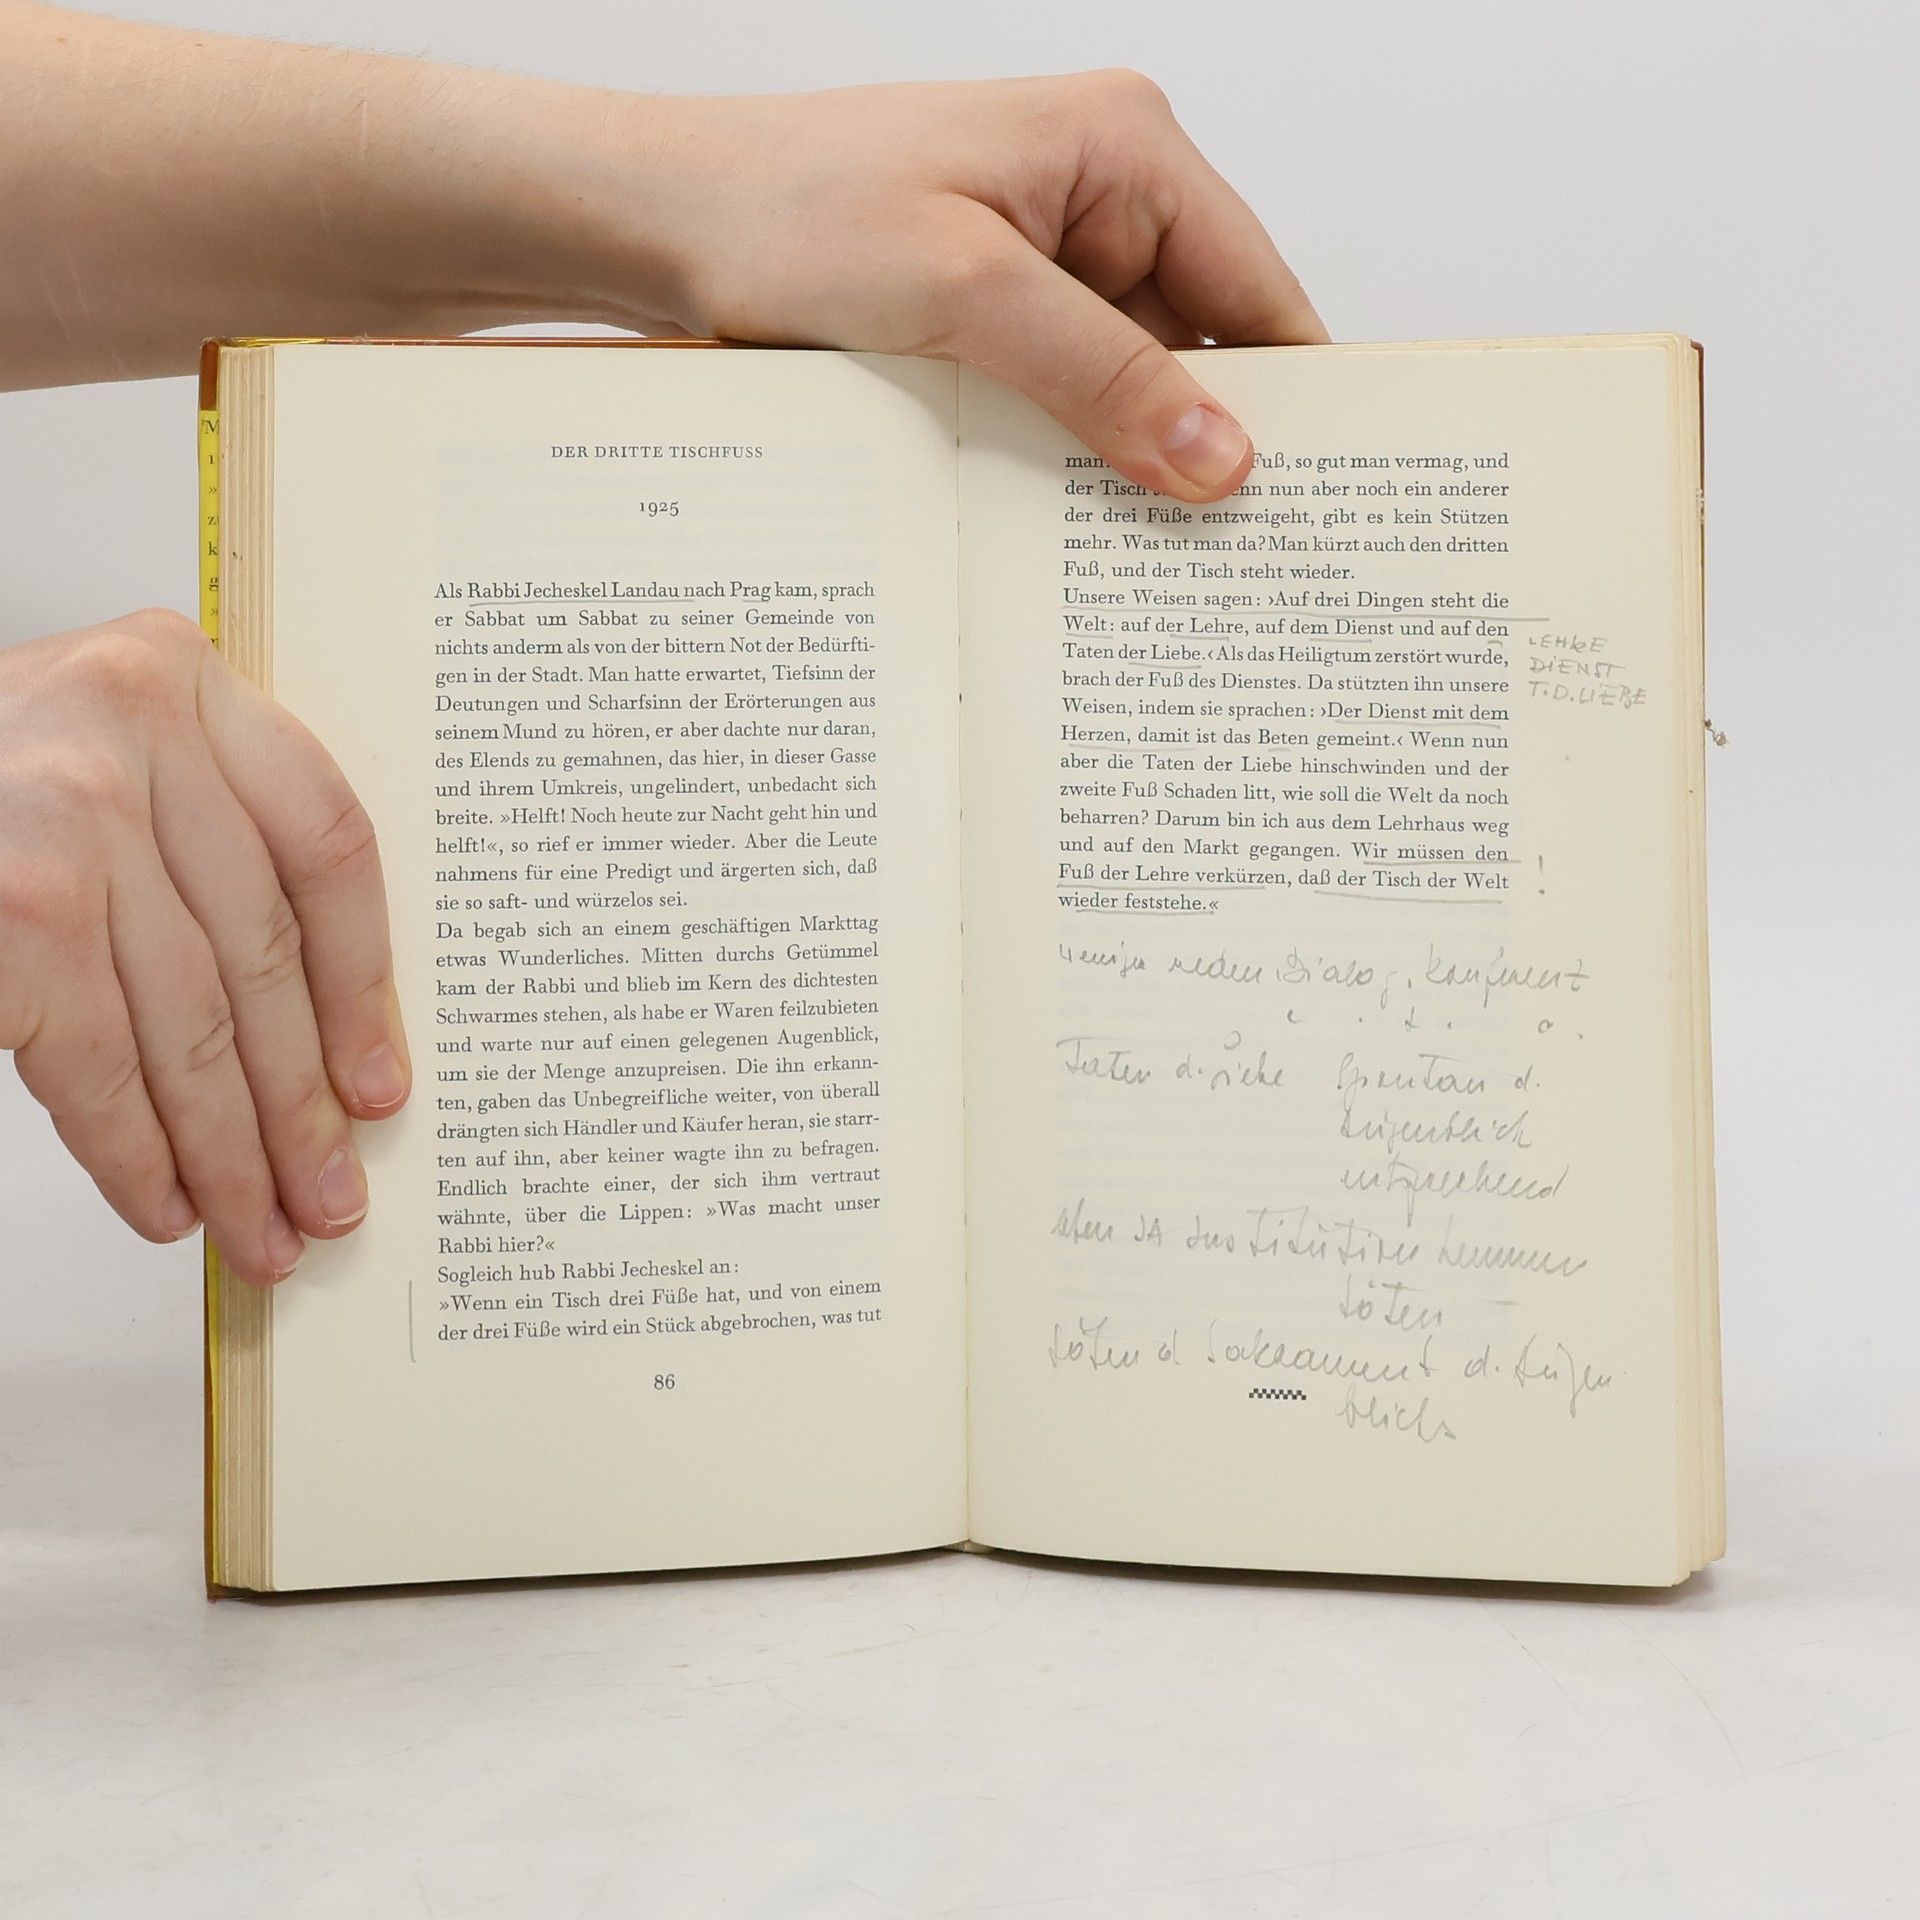 DER DRITTE TISCHFUSS
1925
Als Rabbi Jecheskel Landau nach Prag kam, sprach
er Sabbat um Sabbat zu seiner Gemeinde von
nichts anderm als von der bittern Not der Bedürfti-
gen in der Stadt. Man hatte erwartet, Tiefsinn der
Deutungen und Scharfsinn der Erörterungen aus
seinem Mund zu hören, er aber dachte nur daran,
des Elends zu gemahnen, das hier, in dieser Gasse
und ihrem Umkreis, ungelindert, unbedacht sich
breite. »Helft! Noch heute zur Nacht geht hin und
helft!«, so rief er immer wieder. Aber die Leute
nahmens für eine Predigt und ärgerten sich, daß
sie so saft- und würzelos sei.
Da begab sich an einem geschäftigen Markttag
etwas Wunderliches. Mitten durchs Getümmel
kam der Rabbi und blieb im Kern des dichtesten
Schwarmes stehen, als habe er Waren feilzubieten
und warte nur auf einen gelegenen Augenblick,
um sie der Menge anzupreisen. Die ihn erkann-
ten, gaben das Unbegreifliche weiter, von überall
drängten sich Händler und Käufer heran, sie starr-
ten auf ihn, aber keiner wagte ihn zu befragen.
Endlich brachte einer, der sich ihm vertraut
wähnte, über die Lippen: »Was macht unser
Rabbi hier?«
Sogleich hub Rabbi Jecheskel an:
»Wenn ein Tisch drei Füße hat, und von einem
der drei Füße wird ein Stück abgebrochen, was tut
86
man. Fuß, so gut man vermag, und
der Tisch nun aber noch ein anderer
der drei Füße entzweigeht, gibt es kein Stützen
mehr. Was tut man da? Man kürzt auch den dritten
Fuß, und der Tisch steht wieder.
Unsere Weisen sagen: ›Auf drei Dingen steht die
Welt: auf der Lehre, auf dem Dienst und auf den
Taten der Liebe.‹ Als das Heiligtum zerstört wurde,
brach der Fuß des Dienstes. Da stützten ihn unsere
Weisen, indem sie sprachen: ›Der Dienst mit dem
Herzen, damit ist das Beten gemeint.‹ Wenn nun
aber die Taten der Liebe hinschwinden und der
zweite Fuß Schaden litt, wie soll die Welt da noch
beharren? Darum bin ich aus dem Lehrhaus weg
und auf den Markt gegangen. Wir müssen den
Fuß der Lehre verkürzen, daß der Tisch der Welt
wieder feststehe.«
LEHRE
DIENST
T.D.LIEBE
!
weniger reden Dialog, Konferenz
Taten d. Liebe Spontan d.
Augenblick
entsprechend
eben JA Institution hemmen
töten
töten d Sakrament d. Augen
blicks